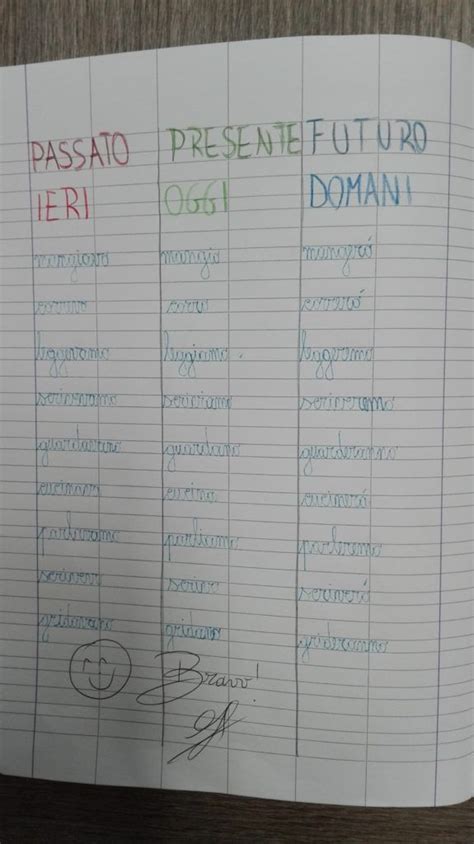 PASSATO PRESENTE FUTURO
IERI OGGI DOMANI
mangiavo mangio mangerò
corro correrò
leggevamo leggiamo.
scrivevamo scriviamo scriveremo
guardavano guardano guarderanno
cucinava cucina cucinerà
parlavamo parliamo parleremo
scriveva scrive scriverà
gridavano gridano grideranno
Bravo!